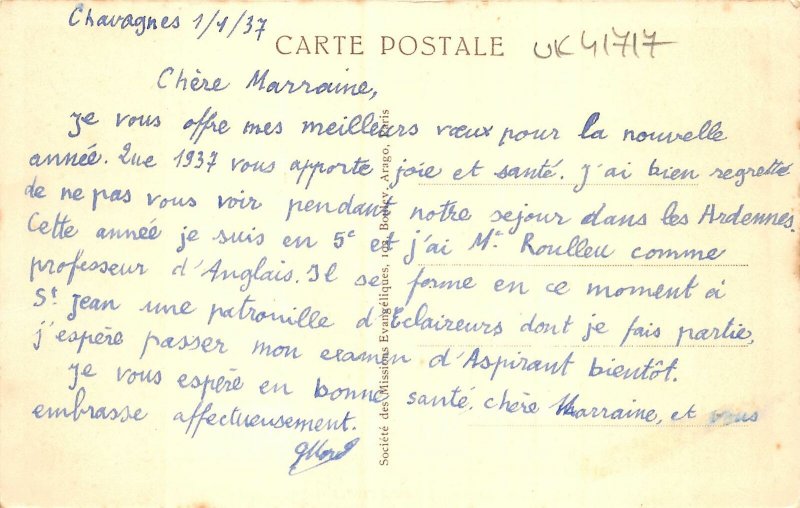 Chavagnes 1/1/37
CARTE POSTALE
UK41717
Chère Marraine,
Je vous offre mes meilleurs vœux pour la nouvelle
année. Que 1937 vous apporte joie et santé. J'ai bien regretté
de ne pas vous voir pendant notre sejour dans les Ardennes.
Cette année je suis en 5e et j'ai Mr Roulleu comme
professeur d'Anglais. Il se forme en ce moment à
St Jean une patrouille d'Eclaireurs dont je fais partie,
j'espère passer mon examen d'Aspirant bientôt.
Je vous espère en bonne santé, chère Marraine, et vous
embrasse affectueusement.
Société des Missions Evangéliques, 102, Boulev. Arago, Paris